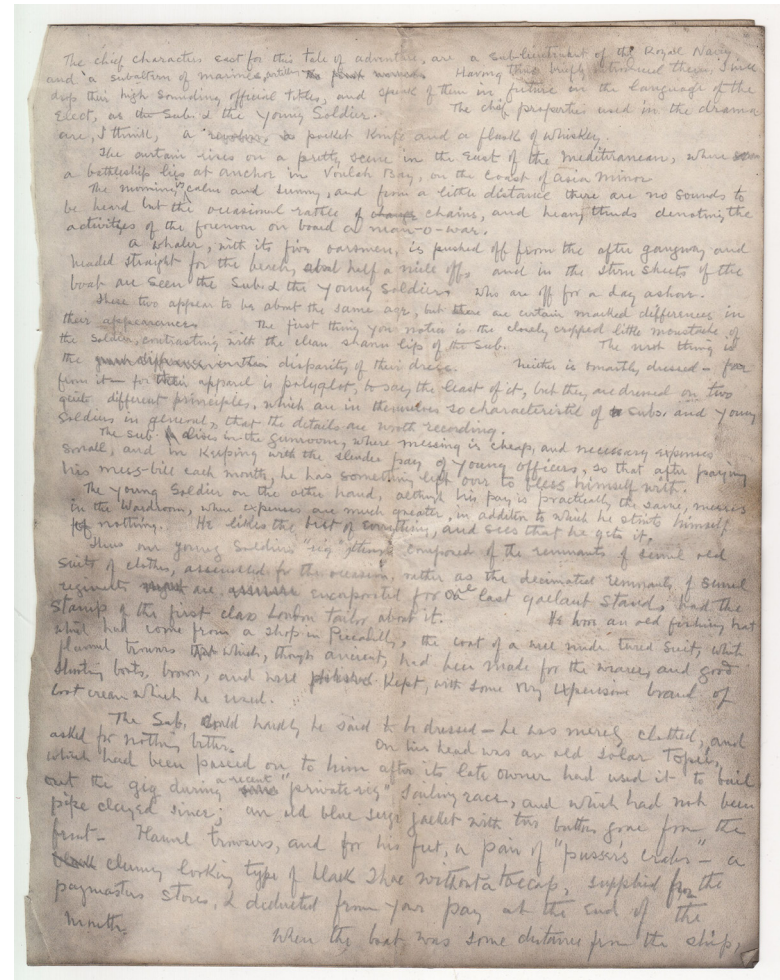 The chief characters cast for this tale of adventure, are a sub-lieutenant of the Royal Navy
and a subaltern of marine artillery. Having thus briefly introduced them, I will
drop their high sounding official titles, and speak of them in future in the language of the
Elect, as the Sub & the Young Soldier. The chief properties used in the drama
are, I think, a pocket knife and a flask of whiskey.
The curtain rises on a pretty scene in the East of the Mediteranean, where
a battleship lies at anchor in Vourlah Bay, on the coast of Asia Minor
The morning's calm and sunny, and from a little distance there are no sounds to
be heard but the occasional rattle of chains, and heavy thuds denoting the
activities of the forenoon on board a man-o-war.
A whaler, with its five oarsmen, is pushed off from the after gangway and
headed straight for the beach, half a mile off, and in the stern sheets of the
boat are seen the Sub & the Young Soldier who are off for a day ashore.
These two appear to be about the same age, but there are certain marked differences in
their appearances. The first thing you notice is the closely cropped little moustache of
the Soldier, contrasting with the clean shaven lip of the Sub. The next thing is
the disparity of their dress. Neither is smartly dressed - far
from it - for their apparel is polyglot, to say the least of it, but they are dressed on two
quite different principles, which are in themselves so characteristic of subs. and young
Soldiers in general, that the details are worth recording.
The Sub lives in the gunroom, where messing is cheap, and necessary expenses
small, and in keeping with the slender pay of young officers, so that after paying
his mess-bill each month, he has something left over to bless himself with.
The Young Soldier on the other hand, altho' his pay is practically the same, messes
in the Wardroom, where expenses are much greater, in addition to which he stints himself
for nothing. He likes the best of everything, and sees that he gets it.
Thus our young Soldier's "rig", composed of the remnants of several old
suits of clothes, assembled for the occasion, rather as the decimated remnants of several
regiments are incorporated for one last gallant stand, had the
stamp of the first class London tailor about it. He wore an old fishing hat
which had come from a shop in Piccadilly, the coat of a well made tweed suit, white
flannel trousers which, though ancient, had been made for the wearer, and good
shooting boots, brown, and well kept, with some very expensive brand of
boot cream which he used.
The Sub, could hardly be said to be dressed - he was merely clothed, and
asked for nothing better. On his head was an old Solar Topee,
which had been passed on to him after its late owner had used it to bail
out the gig during a recent "private rig" sailing race, and which had not been
pipe clayed since; an old blue serge jacket with two buttons gone from the
front - Flannel trousers, and for his feet, a pair of "pusser's crabs" - a
clumsy looking type of black shoe without a toecap, supplied from the
paymasters stores, & deducted from your pay at the end of the
month.
When the boat was some distance from the ship,